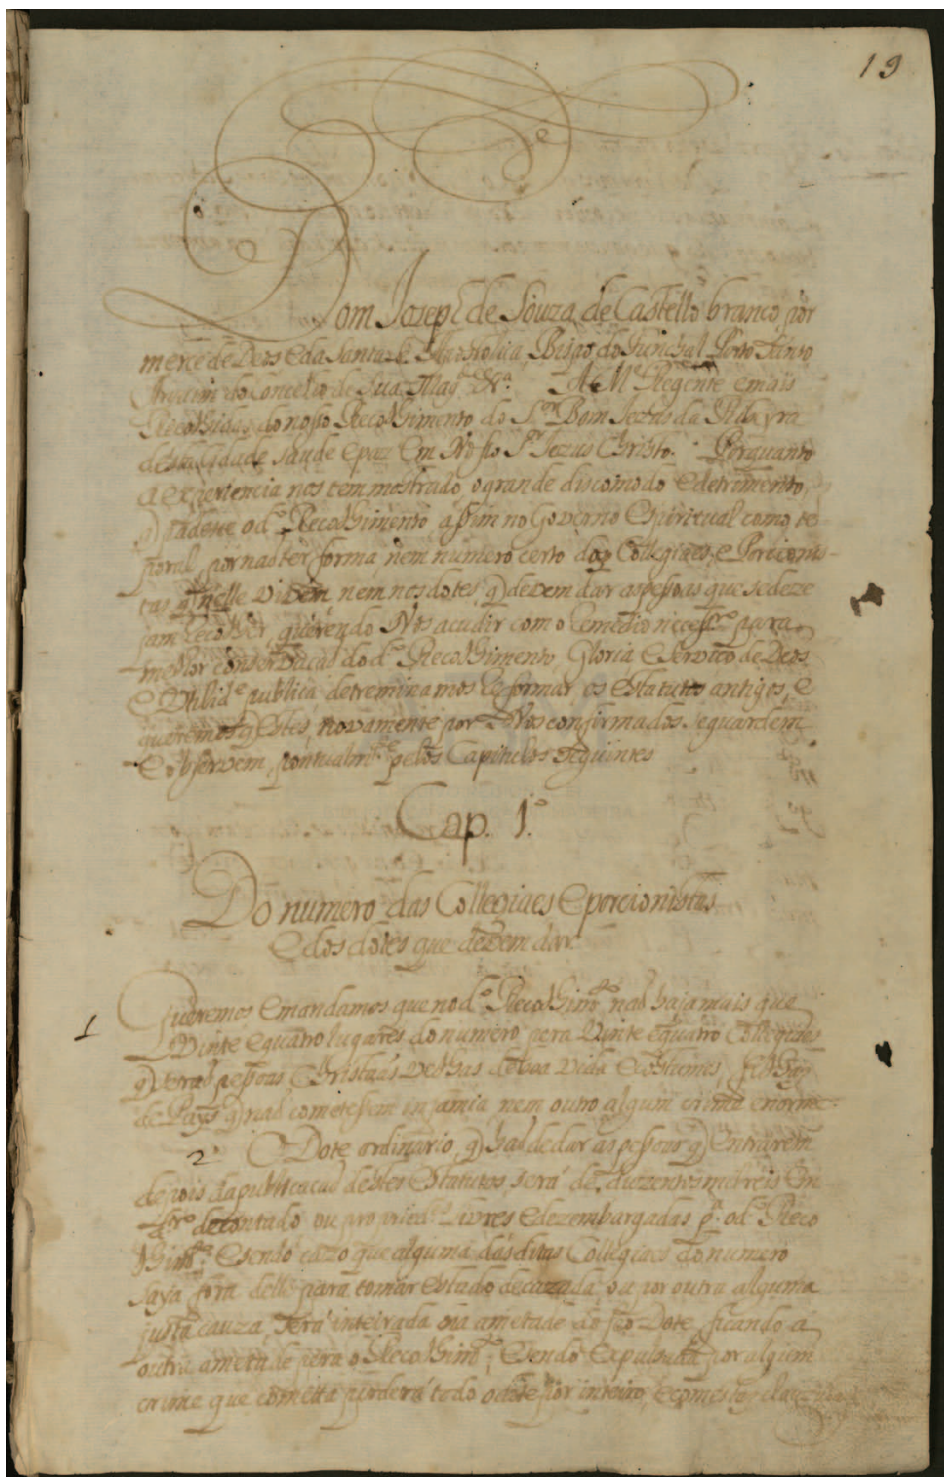 19
Dom Jozeph de Souza de Castello branco por
merce de Deos e da Santa Sé Appostolica, Bispo do Funchal Porto Santo
Arguim do Concelho de Sua Magde. &ca. A Me. Regente e mais
Recolhidas do nosso Recolhimento do Sor. Bom Jezus da Ribeyra
desta Cidade saude e paz em Nosso Sr. Jezus Christo. Porquanto
a experiencia nos tem mostrado o grande discomodo e detrimento
q̃ padece o do. Recolhimento assim no Governo Espiritual como te-
poral, por naõ ter forma nem numero certo das Collegiaes, e Porcionis-
tas q̃ nelle vivem nem nos dotes q̃ devem dar as pessoas que se deze
jam recolher, querendo Nós acudir com o remedio necessro. para
melhor conservacaõ do do. Recolhimento, Gloria e Serviço de Deos
e Utilide. publica detreminamos reformar os estatutos antigos, e
queremos q̃ estes, novamente por Nós confirmados se guardem
e observem pontualmte. pelos Capitulos seguintes
Cap. 1.º
Do numero das Collegiaes e porcionistas
e dos dotes que devem dar.
1 Queremos e mandamos que no do. Recolhimto. naõ haja mais que
vinte e quatro lugares do numero pera vinte e quatro Collegiaes
q̃ seraõ pessoas Christaãs velhas de boa vida e costumes, filhas
de Pays q̃ naõ cometessem infamia nem outro algum crime enorme.
2 O Dote ordinario, q̃ haõ de dar as pessoas q̃ entrarem
depois da publicacaõ destes Estatutos, será de duzentos mil reis em
dro. de contado ou propried. Livres e dezembargadas pa. o do. Reco
lhimto. e sendo cazo que alguma das ditas Collegiaes do numero
saya fora delle para tomar estado de cazada, ou por outra alguma
justa cauza, será inteirada na ametade do seo Dote, ficando a
outra ametade pera o Recolhimto.; e sendo expulsada por algum
crime que cometta perderá todo o dote por inteiro, e com esta